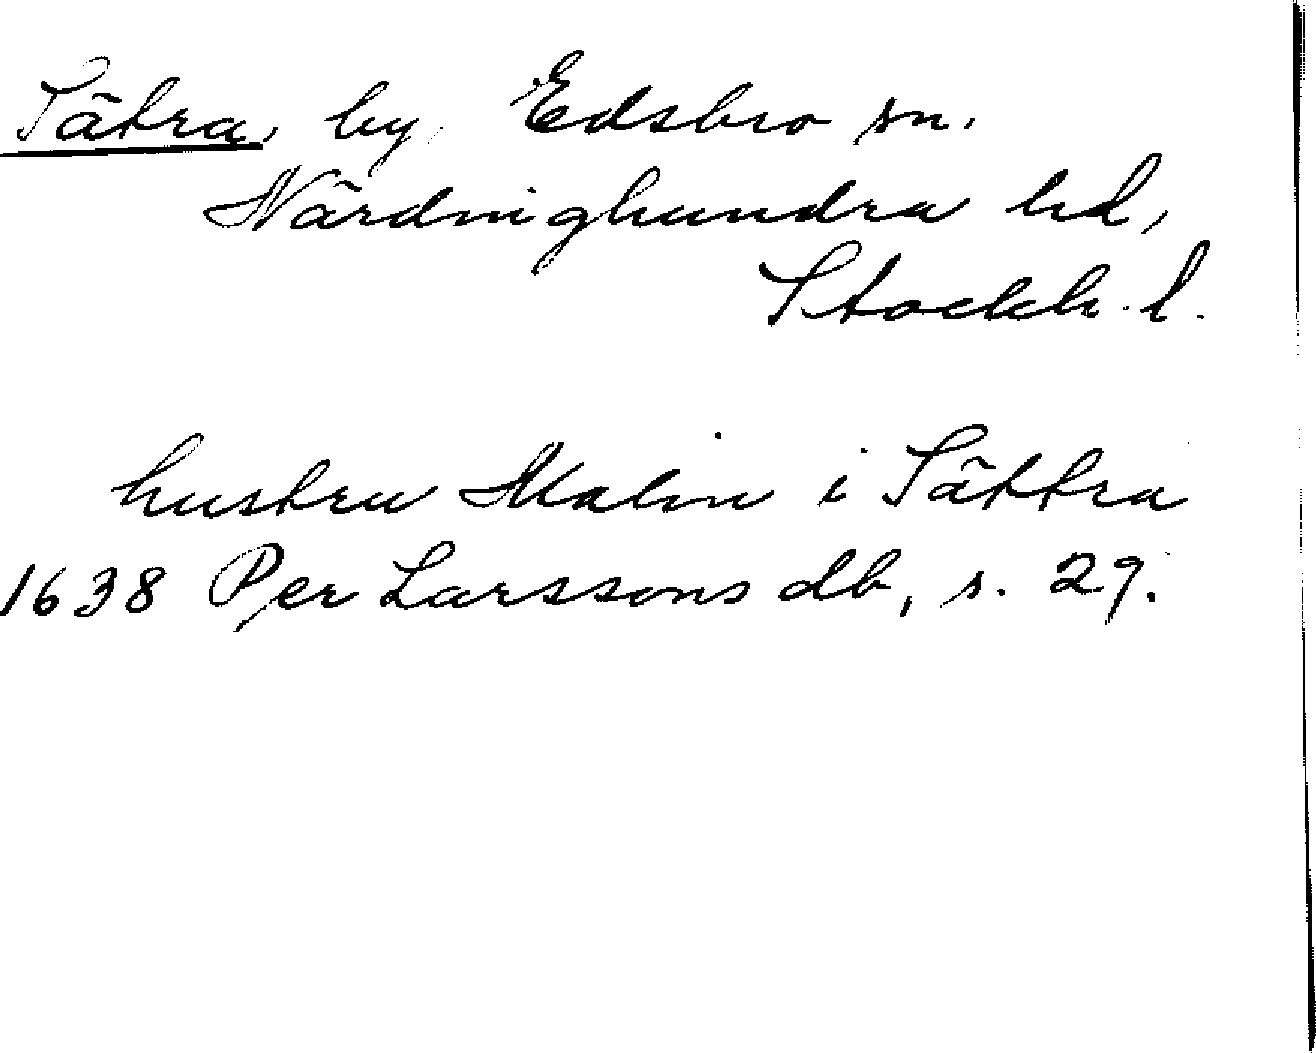 Sätra, by, Edsbro sn.
Närdinghundra hd,
Stockh. l.
hustru Malin i Sättra
1638 Per Larssons db, s. 29.